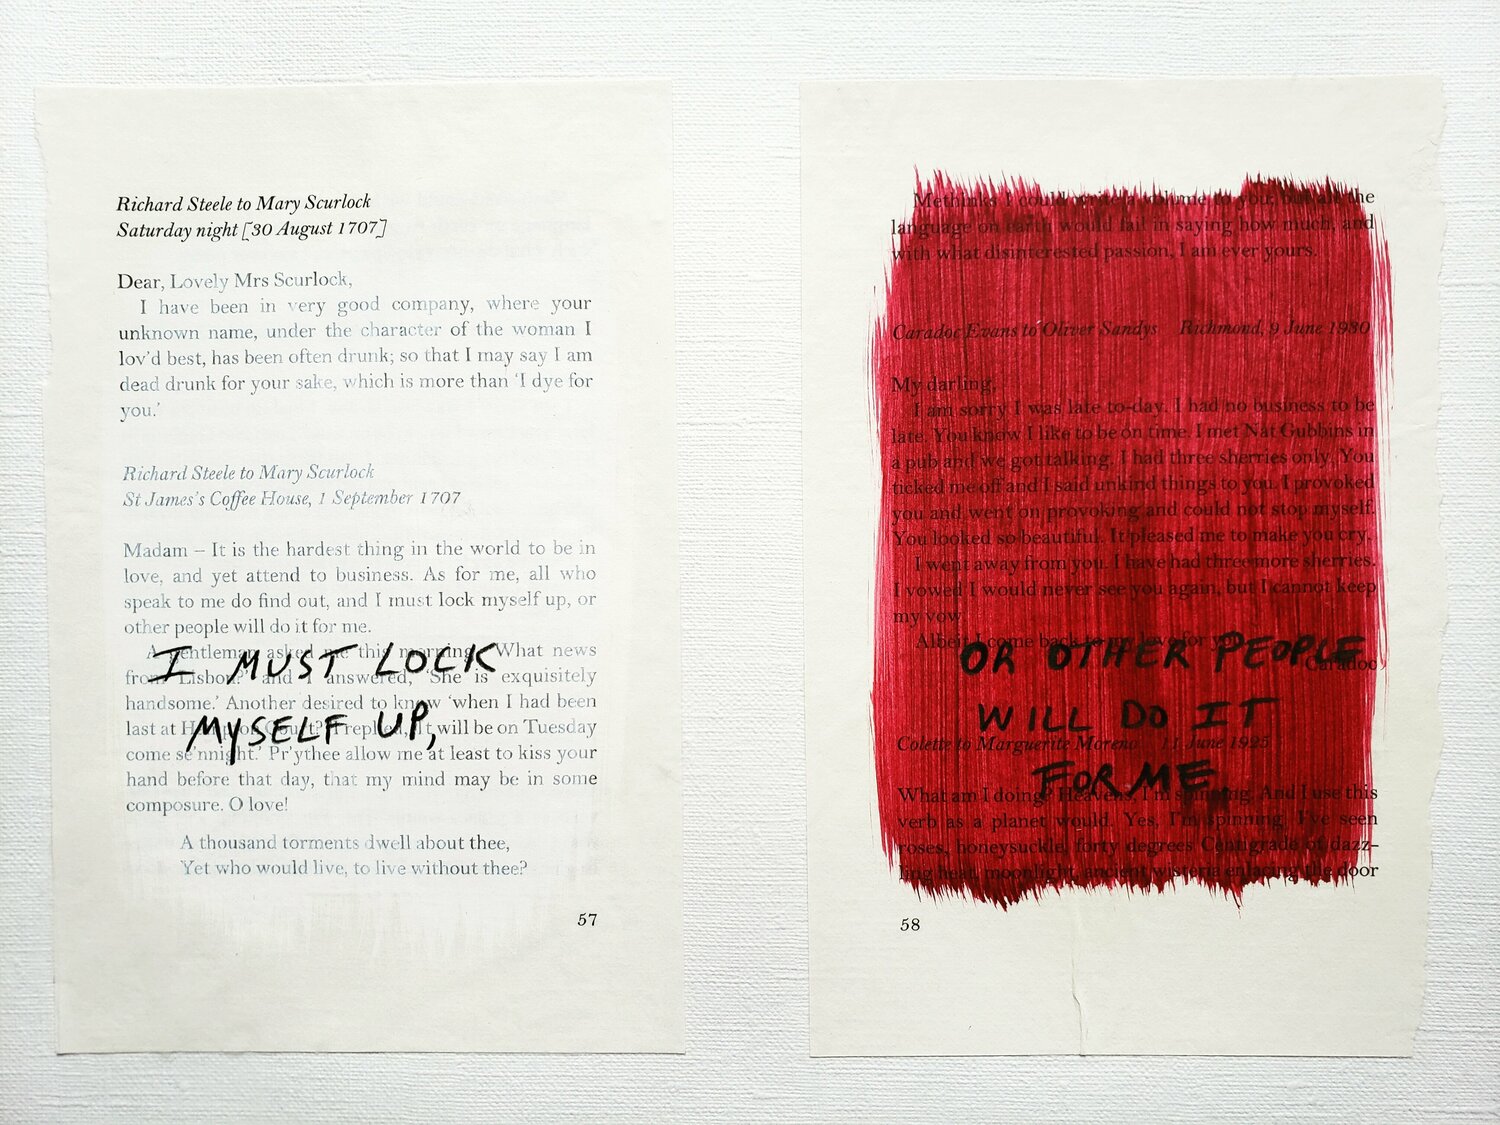 Richard Steele to Mary Scurlock
Saturday night [30 August 1707]
Dear, Lovely Mrs Scurlock,
I have been in very good company, where your
unknown name, under the character of the woman I
lov'd best, has been often drunk; so that I may say I am
dead drunk for your sake, which is more than 'I dye for
you.'
Richard Steele to Mary Scurlock
St James's Coffee House, 1 September 1707
Madam – It is the hardest thing in the world to be in
love, and yet attend to business. As for me, all who
speak to me do find out, and I must lock myself up, or
other people will do it for me.
A gentleman asked me this morning, 'What news
from Lisbon?' and I answered, 'She is exquisitely
I MUST LOCK
handsome.' Another desired to know 'when I had been
last at Hampton Court?' I replied, 'It will be on Tuesday
MYSELF UP,
come se'nnight.' Pr'ythee allow me at least to kiss your
hand before that day, that my mind may be in some
composure. O love!
A thousand torments dwell about thee,
Yet who would live, to live without thee?
57
Methinks I could write a volume to you; but all the
language on earth would fail in saying how much, and
with what disinterested passion, I am ever yours.
Caradoc Evans to Oliver Sandys Richmond, 9 June 1930
My darling,
I am sorry I was late to-day. I had no business to be
late. You know I like to be on time. I met Nat Gubbins in
a pub and we got talking. I had three sherries only. You
ticked me off and I said unkind things to you. I provoked
you and went on provoking and could not stop myself.
You looked so beautiful. It pleased me to make you cry.
I went away from you. I have had three more sherries.
I vowed I would never see you again, but I cannot keep
my vow.
Albeit I come back to my love for
Caradoc
OR OTHER PEOPLE
WILL DO IT
Colette to Marguerite Moreno 11 June 1925
FOR ME
What am I doing? Heavens, I'm spinning. And I use this
verb as a planet would. Yes, I'm spinning. I've seen
roses, honeysuckle, forty degrees Centigrade of dazz-
ling heat, moonlight, ancient wisteria enlacing the door
58